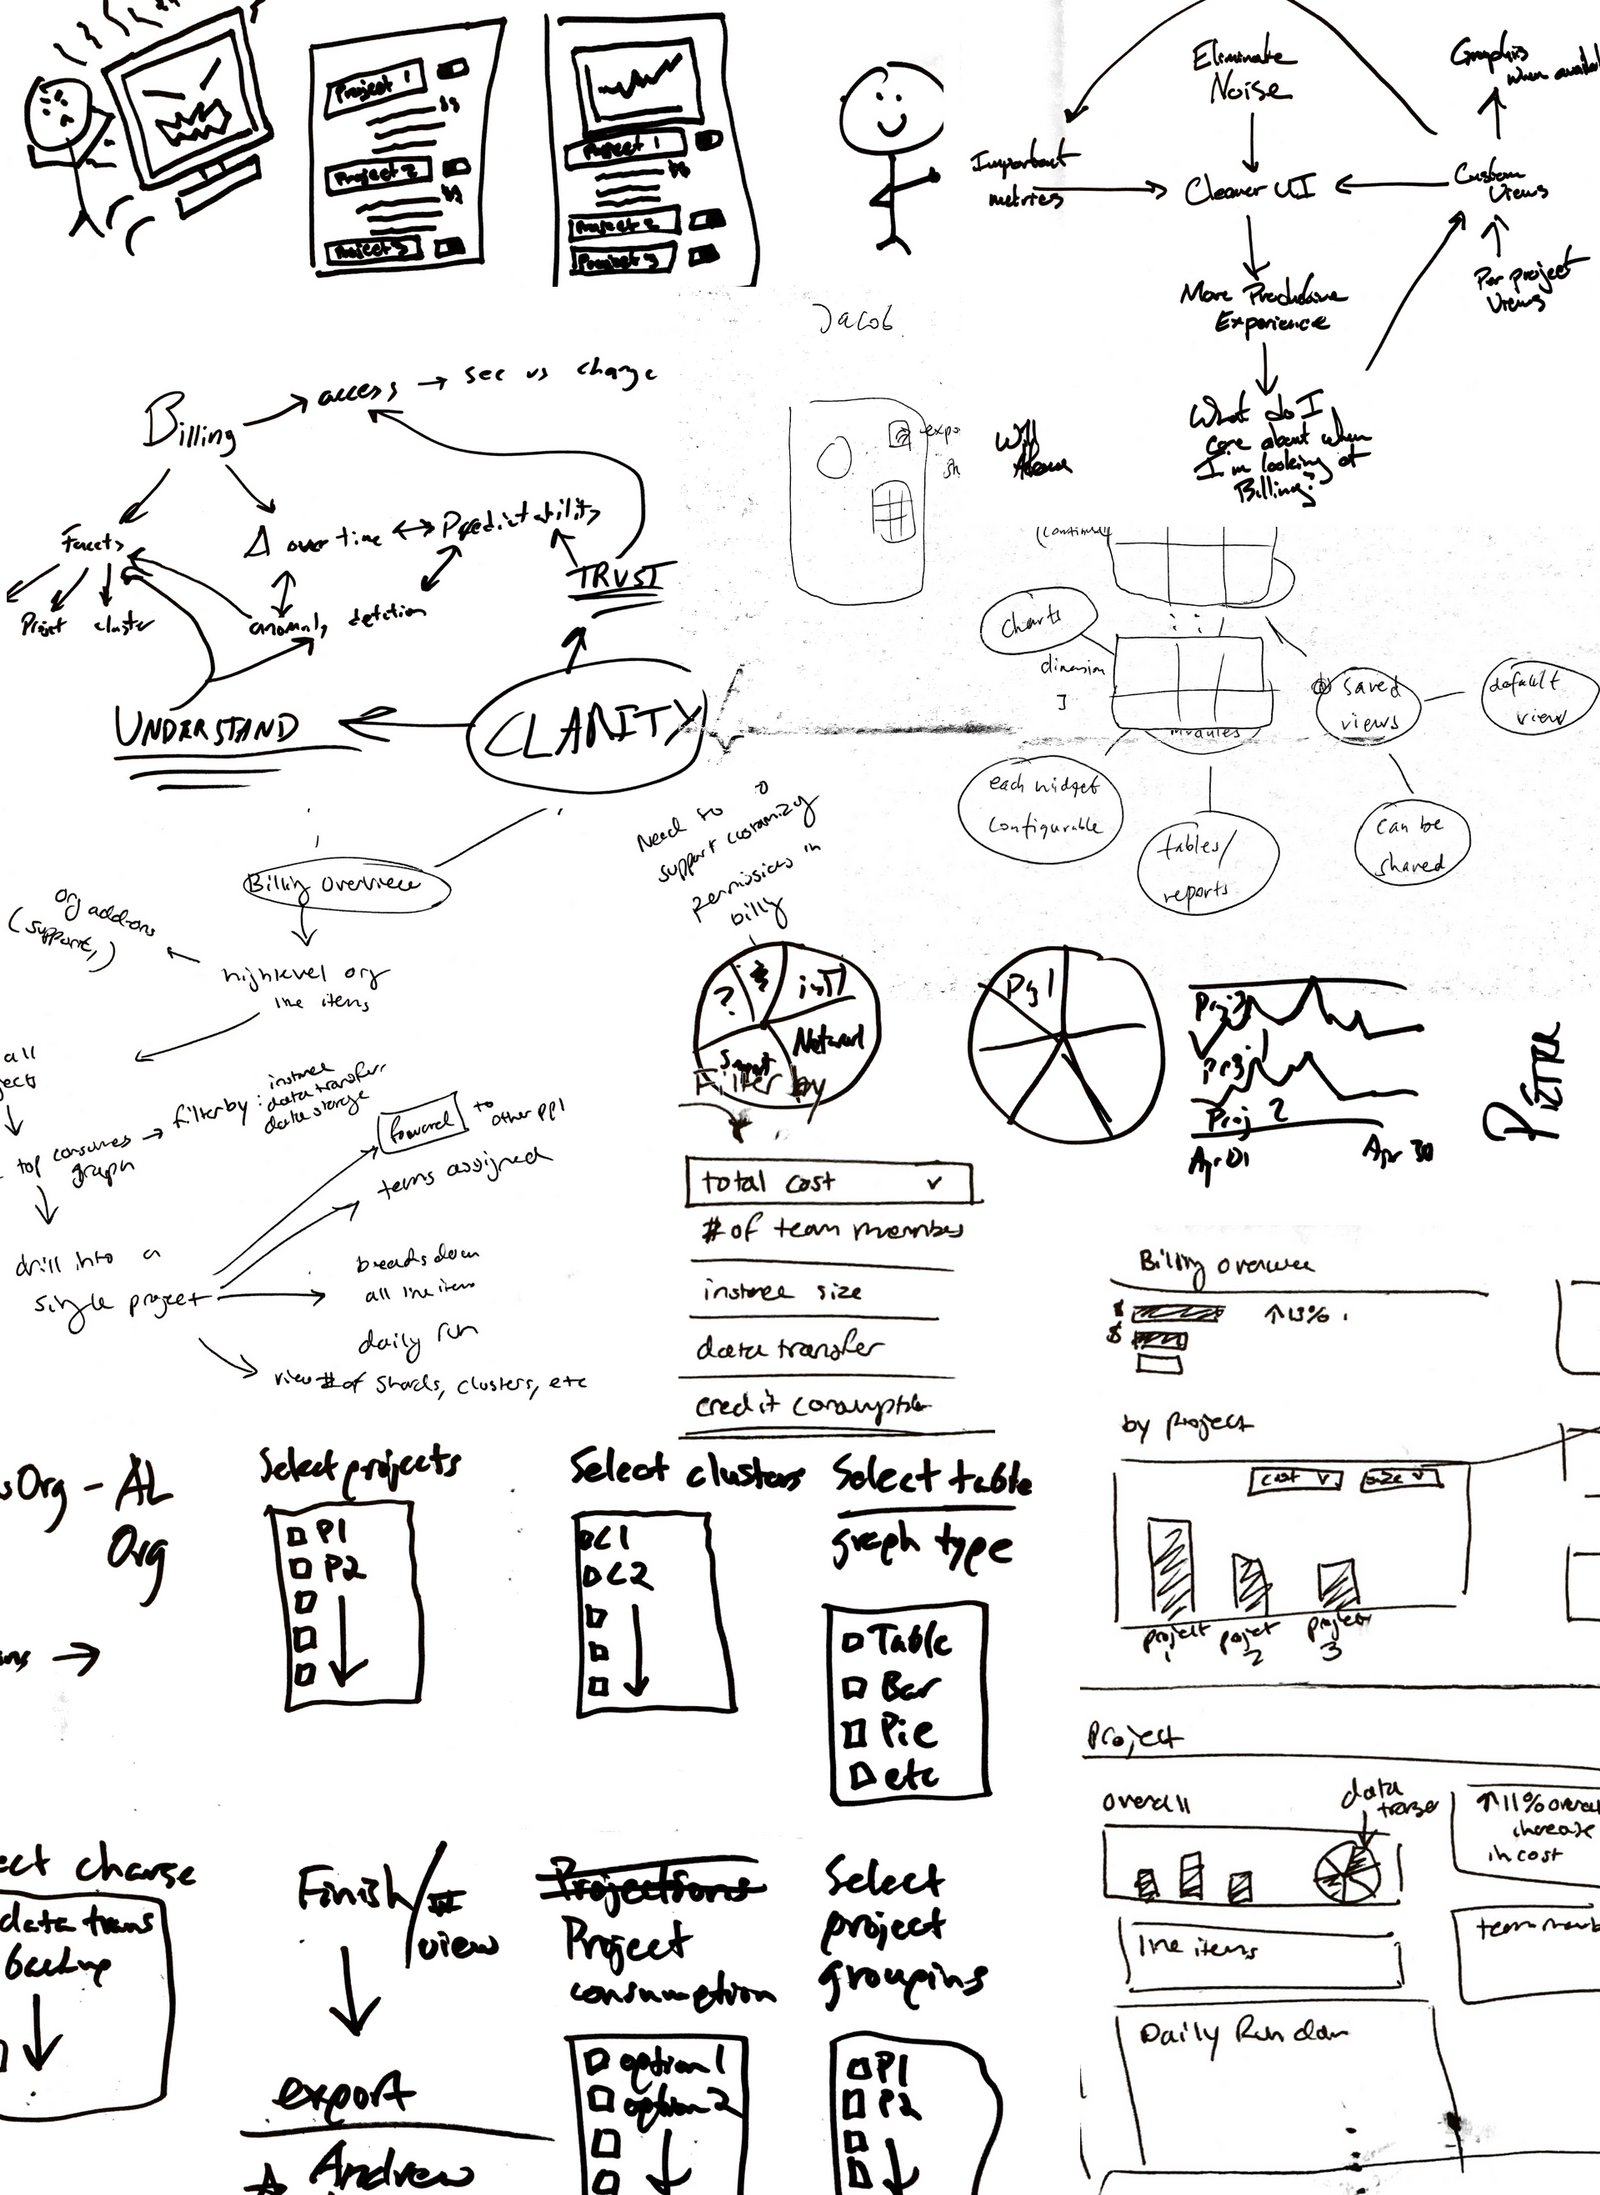 Project 1
Project 2
Project 3
Project 1
Project 2
Project 3
Eliminate
Noise
Graphics
when availa
Important
metrics
Cleaner UI
Custom
Views
Per project
Views
More Productive
Experience
What do I
care about when
I'm looking at
Billing?
Jacob
expo
sh
Will
Billing
access → see vs change
Facets
Δ over time ↔ Predictability
TRUST
Projet
cluster
anomaly detection
UNDERSTAND
CLARITY
(continues
charts
dimension
modules
saved
views
default
view
each widget
configurable
tables/
reports
can be
shared
Need to
support customizg
permissions in
billg
Billing overview
org add-ons
(support,)
high level org
line items
all
jects
top consumes
graph
filter by: instance
data transfer,
data storage
forward
to
other ppl
teams assigned
drill into a
single project
breaks down
all line items
daily run
view # of shards, clusters, etc
?
$
inst
Network
Support
Filter by
Pj 1
Proj 3
Proj 1
Proj 2
Apr 01
Apr 30
Pietra
total cost v
# of team members
instance size
data transfer
credit consumption
Billing overview
$
$
↑13%
by project
cost v
size v
project
1
project
2
project
3
sOrg - AL
Org
ns →
Select projects
P1
P2
Select clusters
C1
C2
Select table
graph type
Table
Bar
Pie
etc
Project
overall
data
transfer
↑11% overall
increase
in cost
line items
team memb
Daily Run down
ect charge
data trans
backup
Finish/
view
export
Andrew
Projections
Project
consumption
option 1
option 2
Select
project
groupings
P1
P2